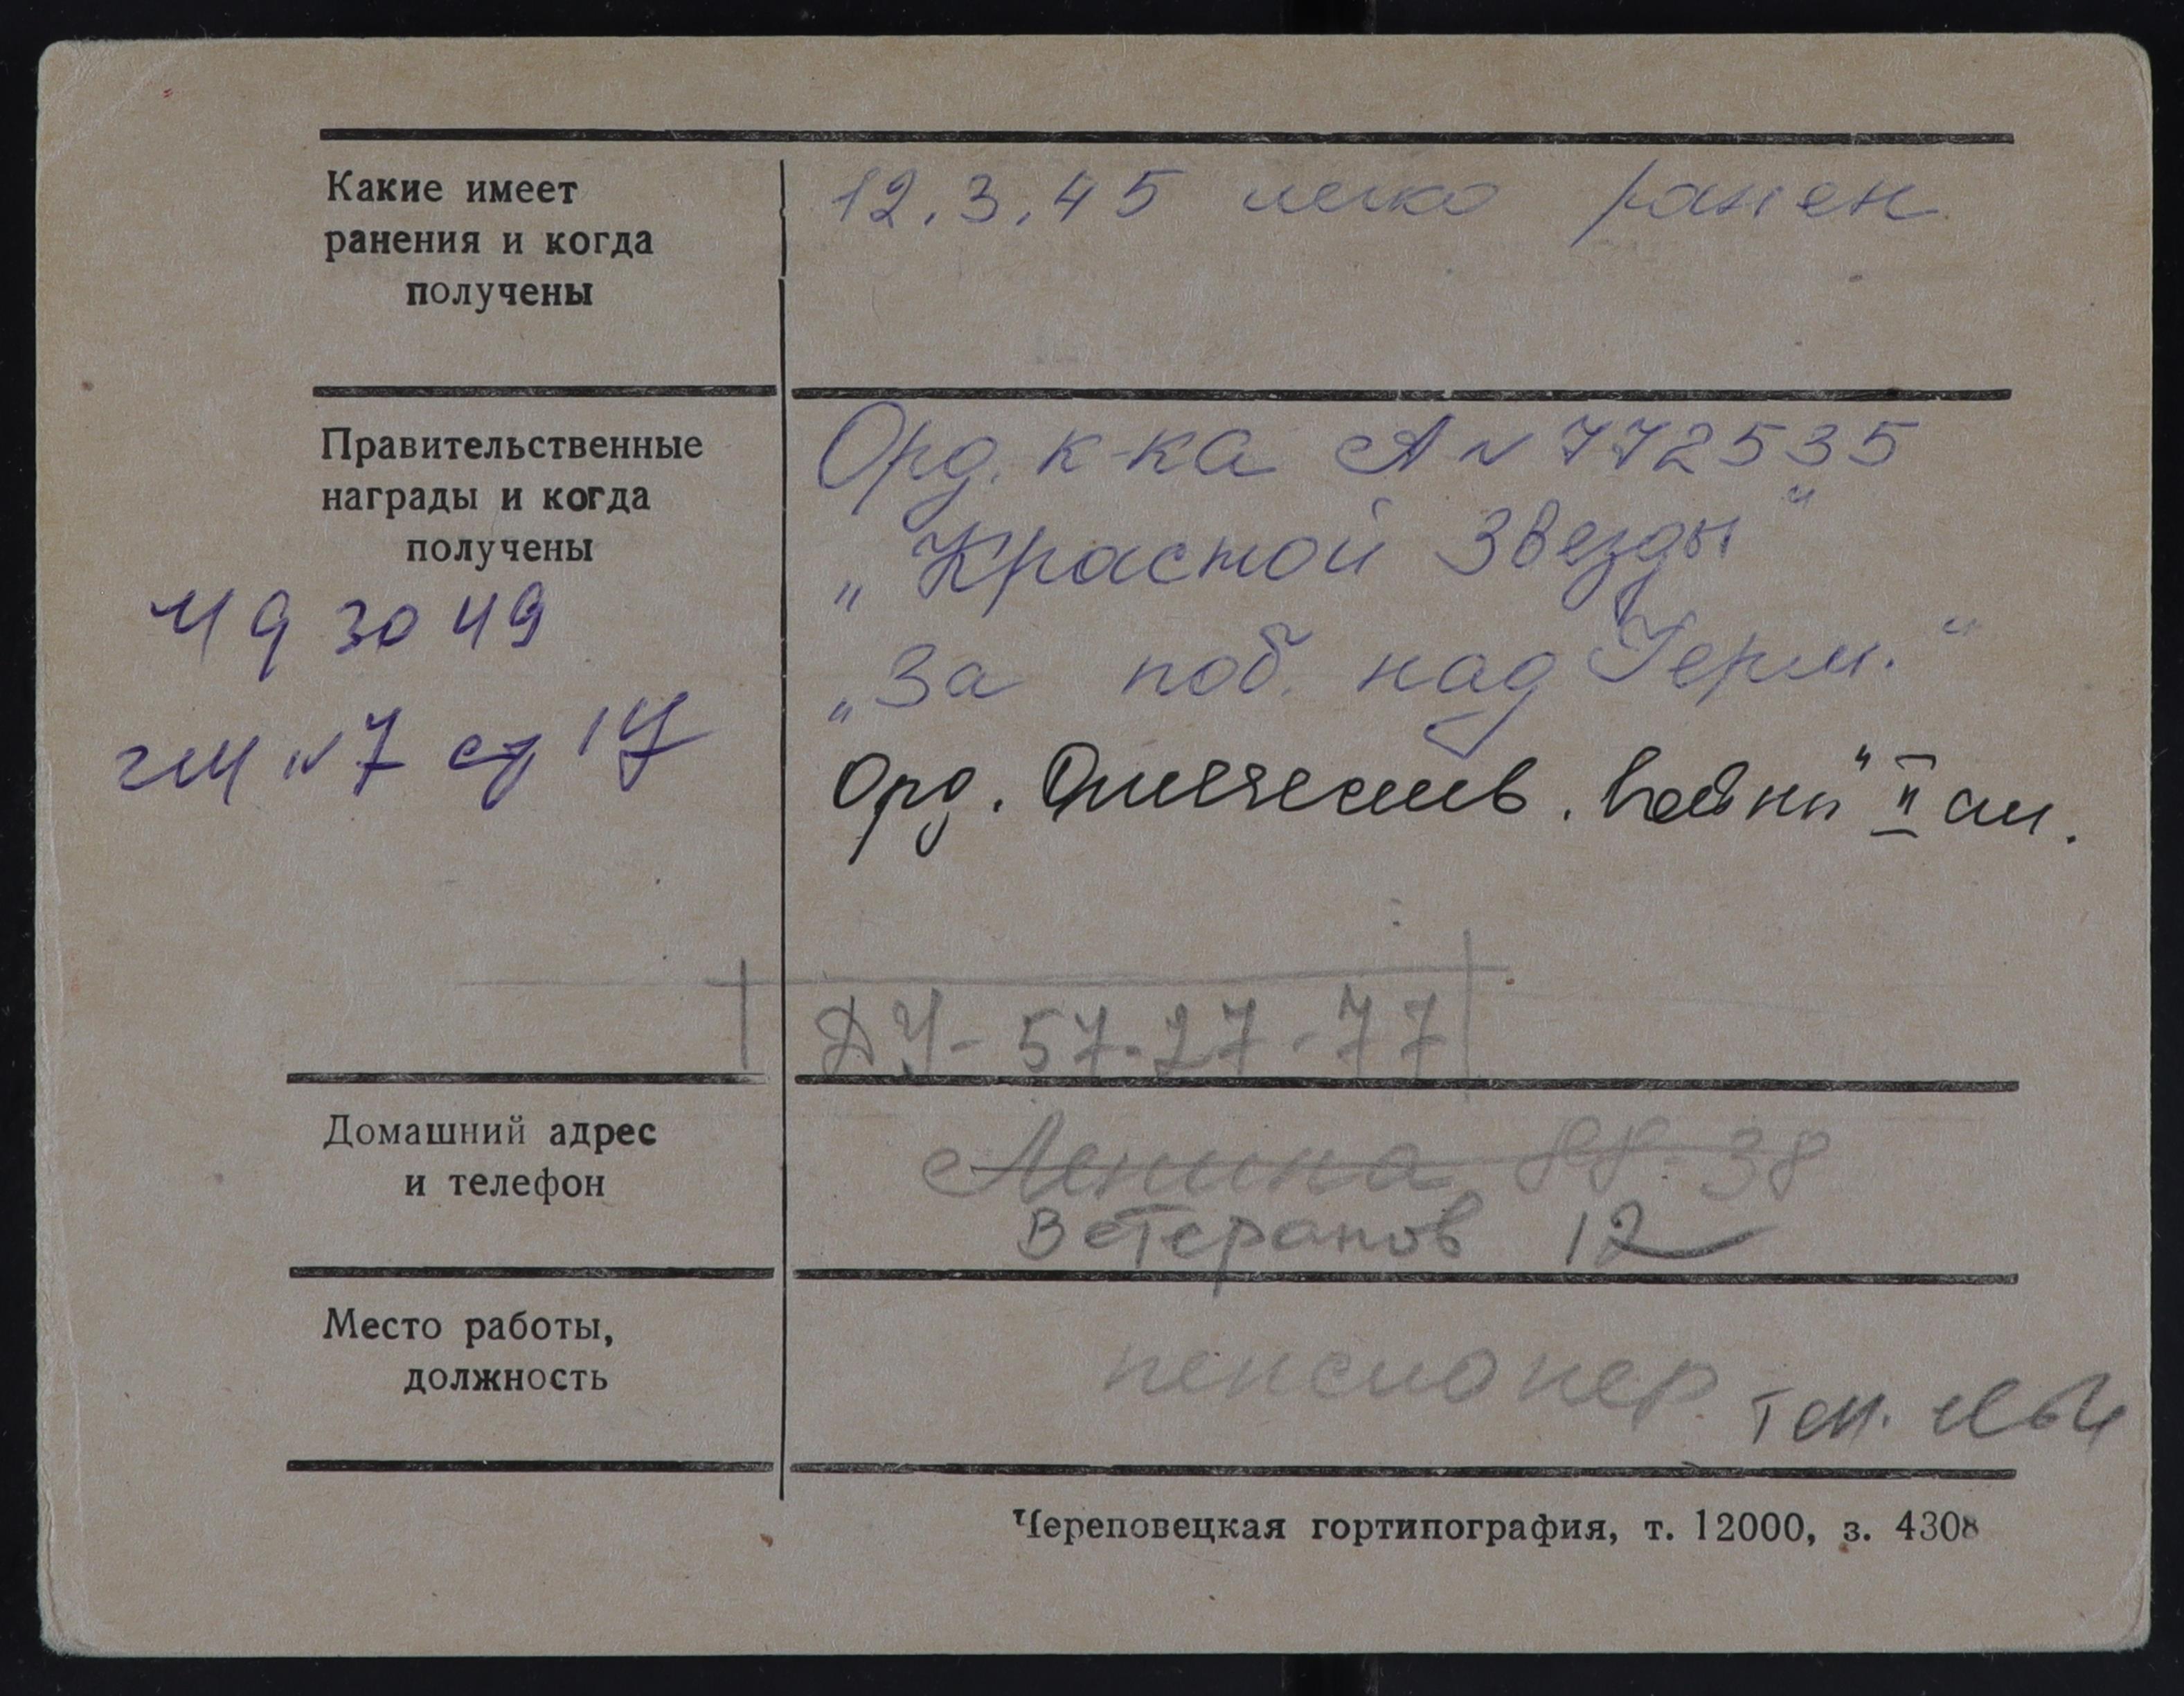 Какие имеет
ранения и когда
получены
12.3.45 легко ранен
Правительственные
награды и когда
получены
Орд. к-ка А № 772535
„Красной Звезды“
„За поб. над Герм.“
Орд. Отечеств. войны" II ст.
Ч 9 30 49
№ 7
57-27-77
Домашний адрес
и телефон
Ленина 88-38
Ветеранов 12
Место работы,
должность
пенсионер
Череповецкая гортипография, т. 12000, з. 4308